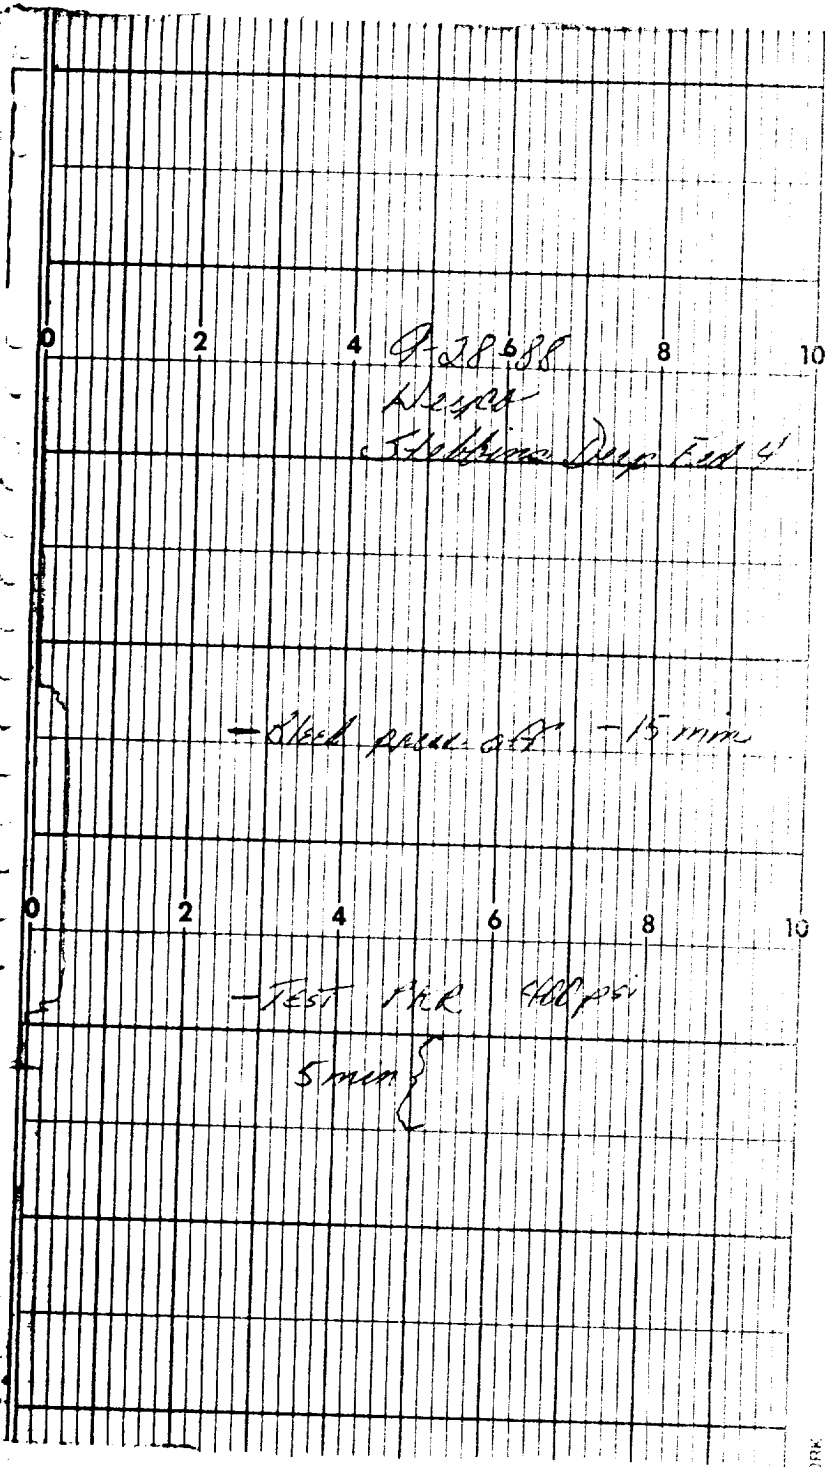 0 2 4 6 8 10
9-28-88
Stebbins Deep Fed 4
- Bleed press. off - 15 min
0 2 4 6 8 10
- TEST PKR 400 psi
5 min